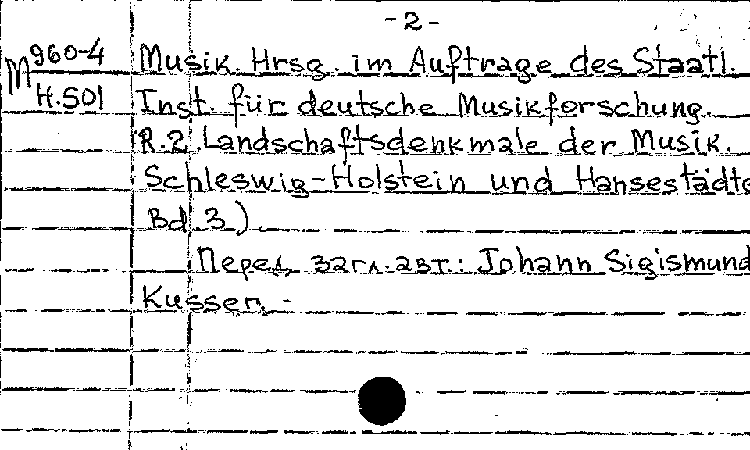 -2-
M 960-4
H.501
Musik. Hrsg. im Auftrage des Staatl.
Inst. für deutsche Musikforschung.
R.2. Landschaftsdenkmale der Musik.
Schleswig-Holstein und Hansestädte
Bd. 3)
Перед загл. авт.: Johann Sigismund
Kusser. -